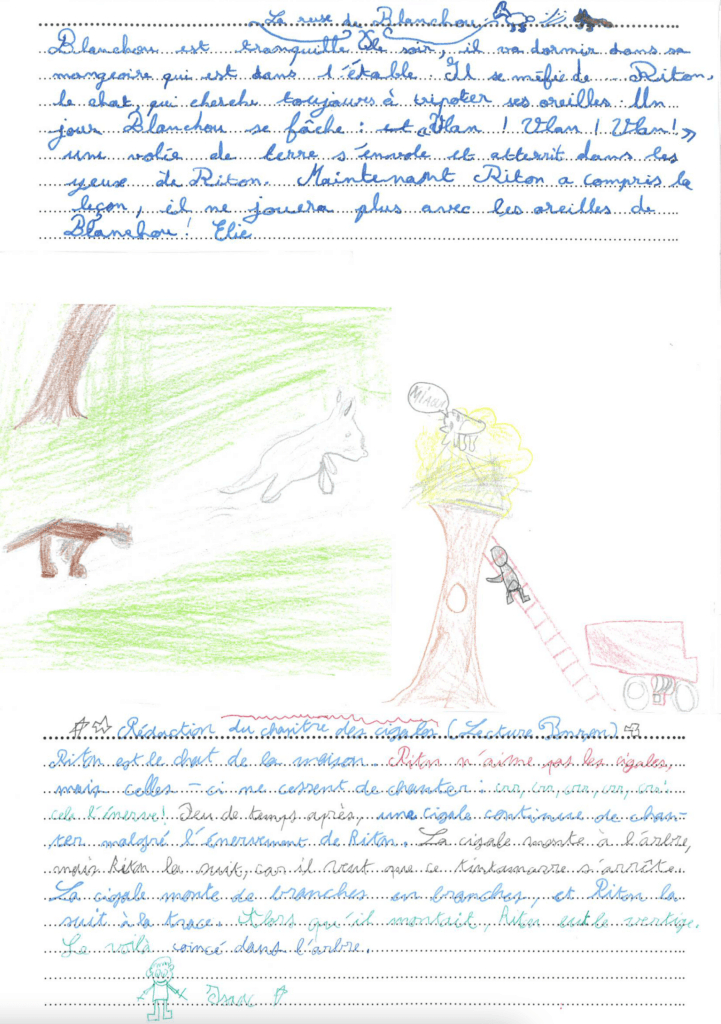 La ruse de Blanchou :
Blanchou est tranquille. Ce soir, il va dormir dans sa
mangeoire qui est dans l'étable. Il se méfie de Riton,
le chat, qui cherche toujours à tripoter ses oreilles. Un
jour Blanchou se fâche : « Vlan ! Vlan ! Vlan ! »
une volée de terre s'envole et atterrit dans les
yeux de Riton. Maintenant Riton a compris la
leçon, il ne jouera plus avec les oreilles de
Blanchou ! Elie
MIAOU
Rédaction du chantre des cigales (Lecture
Riton est le chat de la maison. Riton n'aime pas les cigales,
mais celles-ci ne cessent de chanter : crr, crr, crr, crr, crr !
cela l'énerve ! Peu de temps après, une cigale continue de chan-
ter malgré l'énervement de Riton. La cigale monte à l'arbre,
mais Riton la suit, car il veut que ce tintamarre s'arrête.
La cigale monte de branches en branches, et Riton la
suit à la trace. Alors qu'il montait, Riton eut le vertige.
Le voilà coincé dans l'arbre.
Isaac